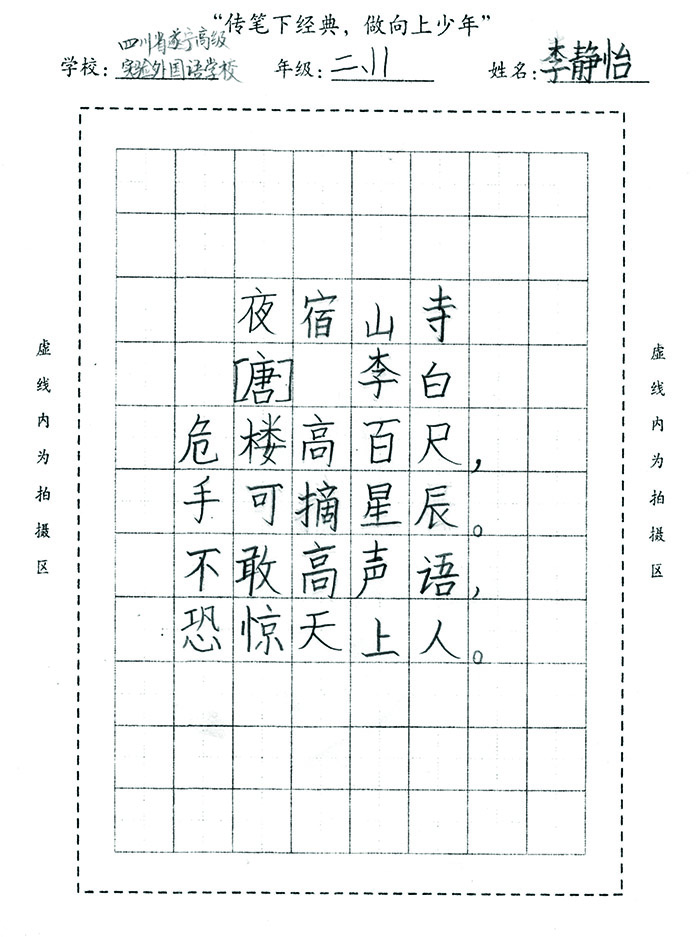 “传笔下经典，做向上少年”
学校：四川省遂宁高级实验外国语学校 年级：二、11 姓名：李静怡
夜宿山寺
[唐] 李白
危楼高百尺，
手可摘星辰。
不敢高声语，
恐惊天上人。
虚线内为拍摄区
虚线内为拍摄区